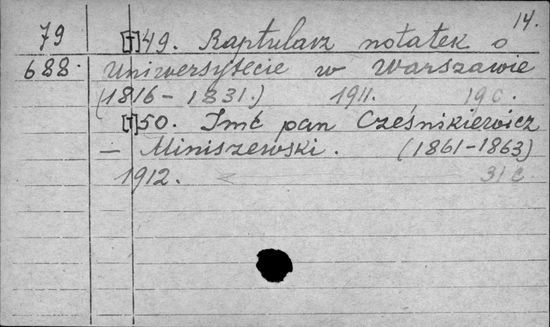 14.
79 [T]49. Raptularz notatek o
688. Uniwersytecie w Warszawie
(1816-1831.) 1911. 19 c.
[T]50. Jmć pan Cześnikiewicz
— Miniszewski. (1861-1863)
1912. 31 c.